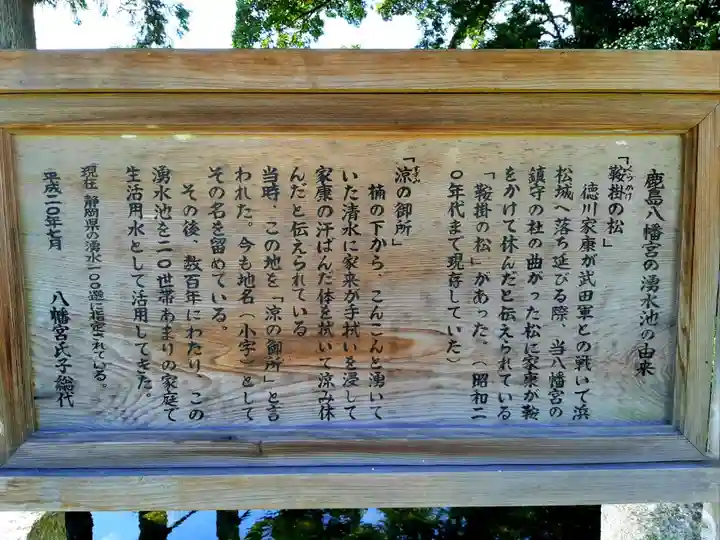 鹿島八幡宮の湧水池の由来
「鞍掛の松」
徳川家康が武田軍との戦いで浜
松城へ落ち延びる際、当八幡宮の
鎮守の杜の曲がった松に家康が鞍
をかけて休んだと伝えられている
「鞍掛の松」があった。(昭和二
〇年代まで現存していた)
「涼の御所」
楠の下から、こんこんと湧いて
いた清水に家来が手拭いを浸して
家康の汗ばんだ体を拭いて涼み休
んだと伝えられている
当時、この地を「涼の御所」と言
われた。今も地名(小字)として
その名を留めている。
その後、数百年にわたり、この
湧水池を二〇世帯あまりの家庭で
生活用水として活用してきた。
現在 静岡県の湧水一〇〇選に指定されている。
平成二〇年七月 八幡宮氏子総代